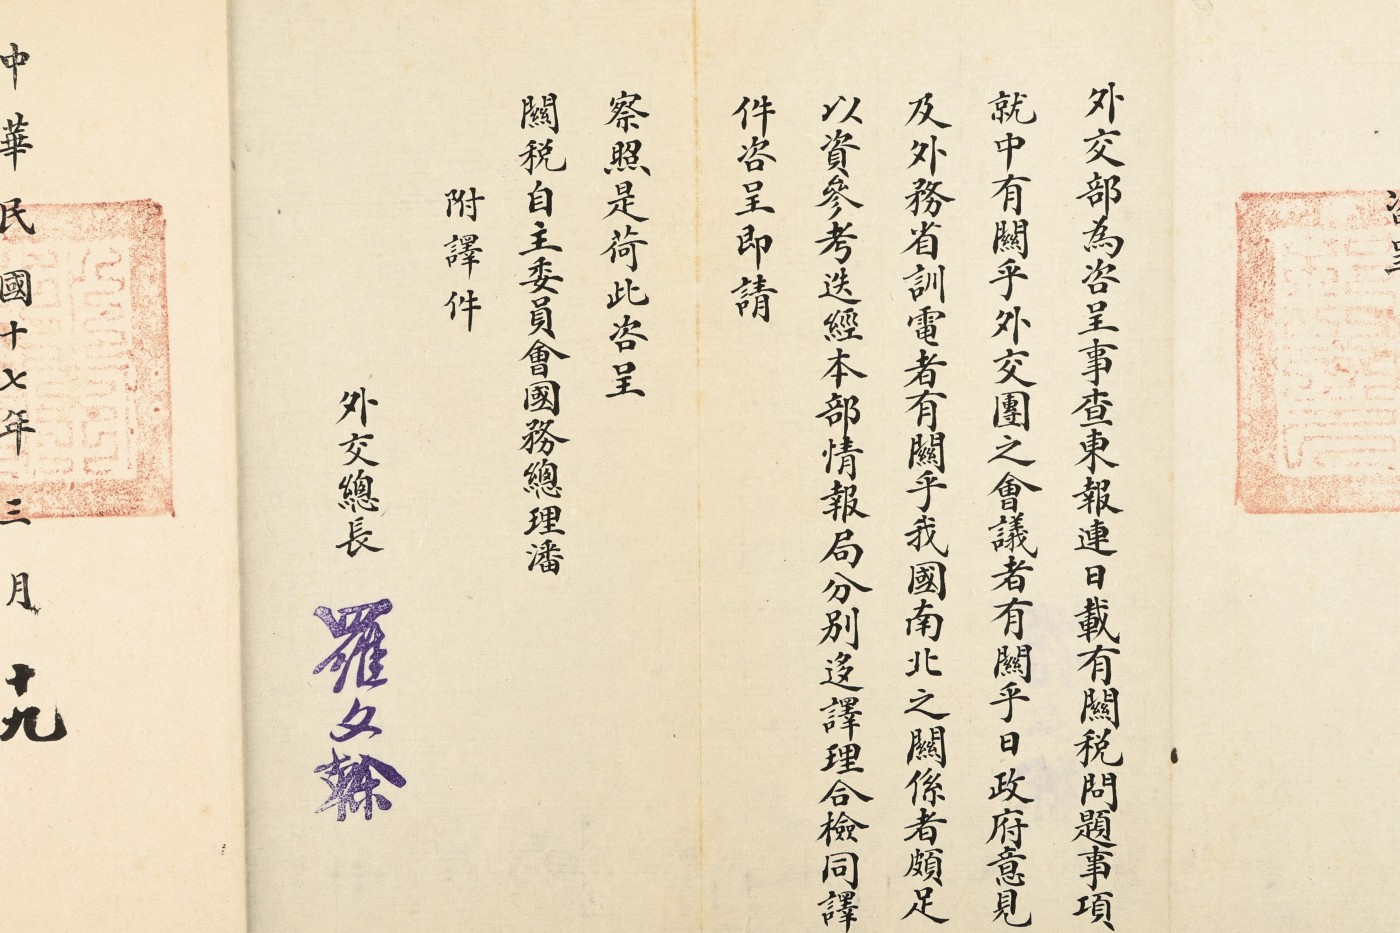 咨呈
外交部為咨呈事查東報連日載有關稅問題事項
就中有關乎外交團之會議者有關乎日政府意見
及外務省訓電者有關乎我國南北之關係者頗足
以資參考迭經本部情報局分別迻譯理合檢同譯
件咨呈即請
察照是荷此咨呈
關稅自主委員會國務總理潘
附譯件
外交總長 羅文榦
中華民國十七年三月十九